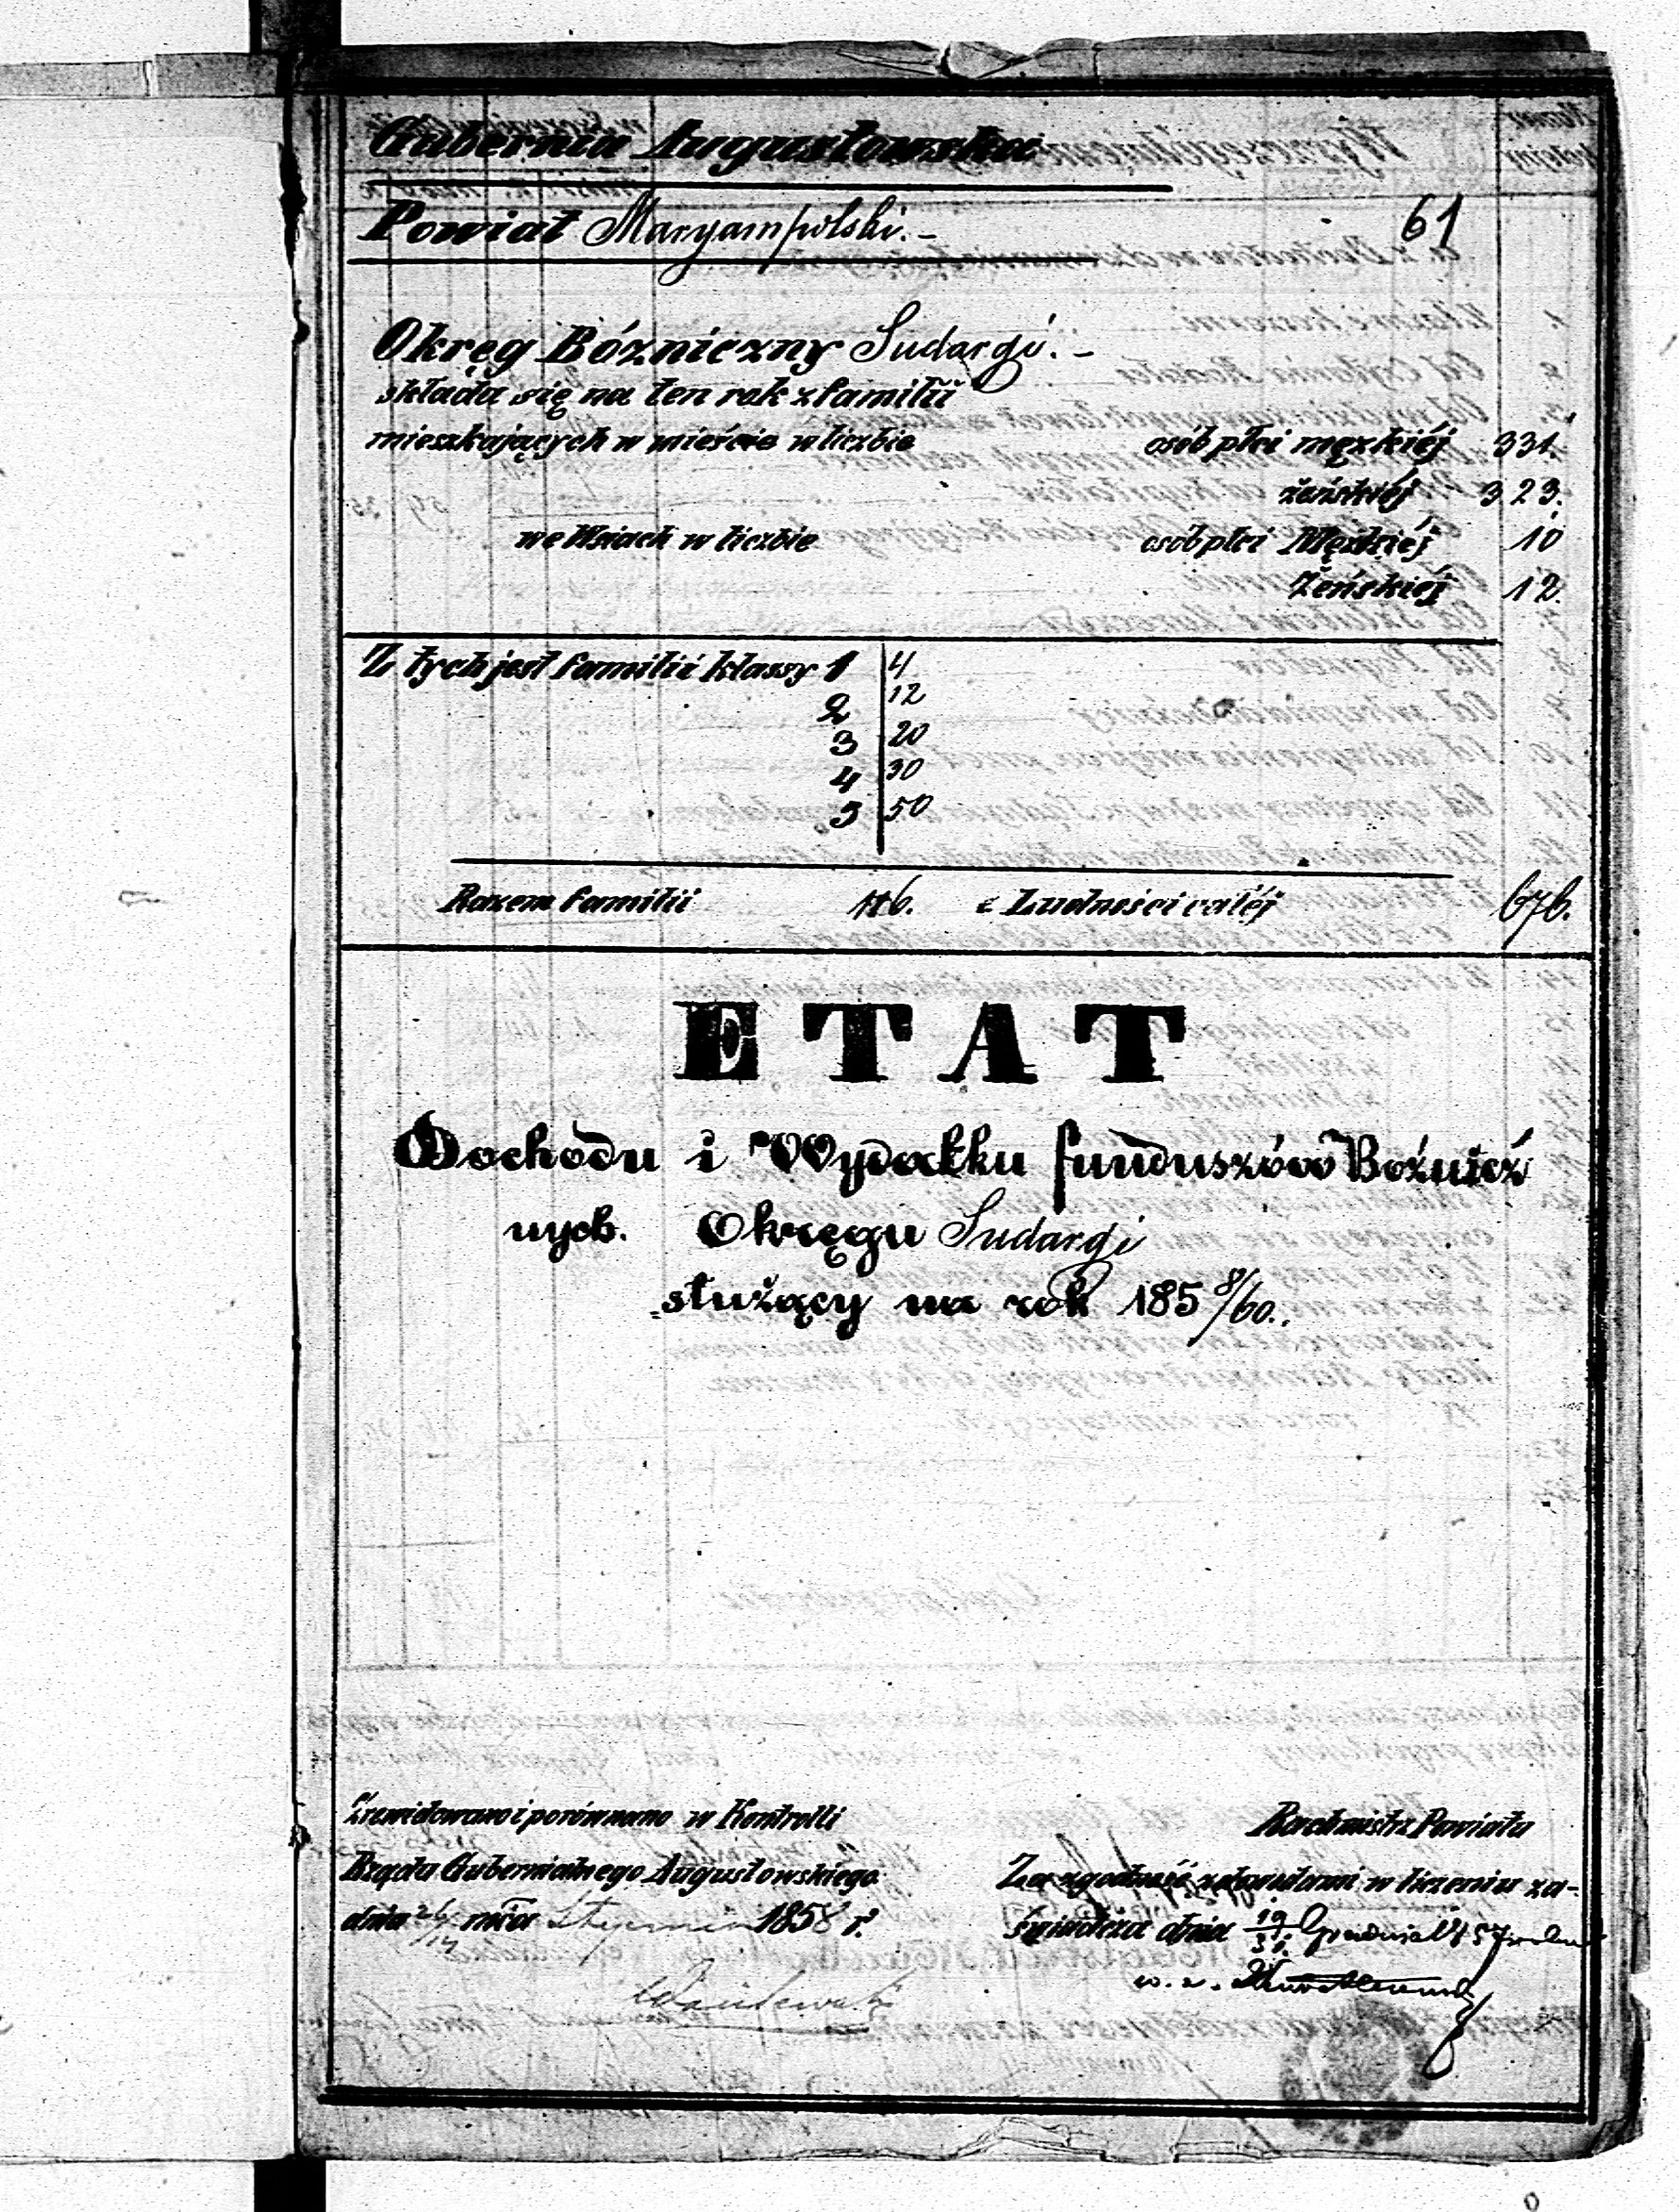 Gubernia Augustowska
Powiat Maryampolski. –
61
Okręg Bózniczny Sudargi. –
składa się na ten rok z familii
mieszkających w mieście w liczbie osób płci męzkiéj 331.
żeńskiéj 323.
we Wsiach w liczbie osób płci Męzkiéj 10
Żeńskiéj 12.
Z tych jest familii klassy 1 4
2 12
3 20
4 30
5 50
Razem familii 116. z Ludności całéj 676.
ETAT
Dochodu i Wydatku funduszów Boźnicz
nych. Okręgu Sudargi
służący na rok 1858/60.
Zrewidowano i porównano w Kontrolli
Rządu Gubernialnego Augustowskiego
dnia 26/14 mca Stycznia 1858 r.
Rachmistrz Powiatu
Za zgodność z dowodami w liczeniu za-
świadcza dnia 19/31 Grudnia 1857 roku
w. z.